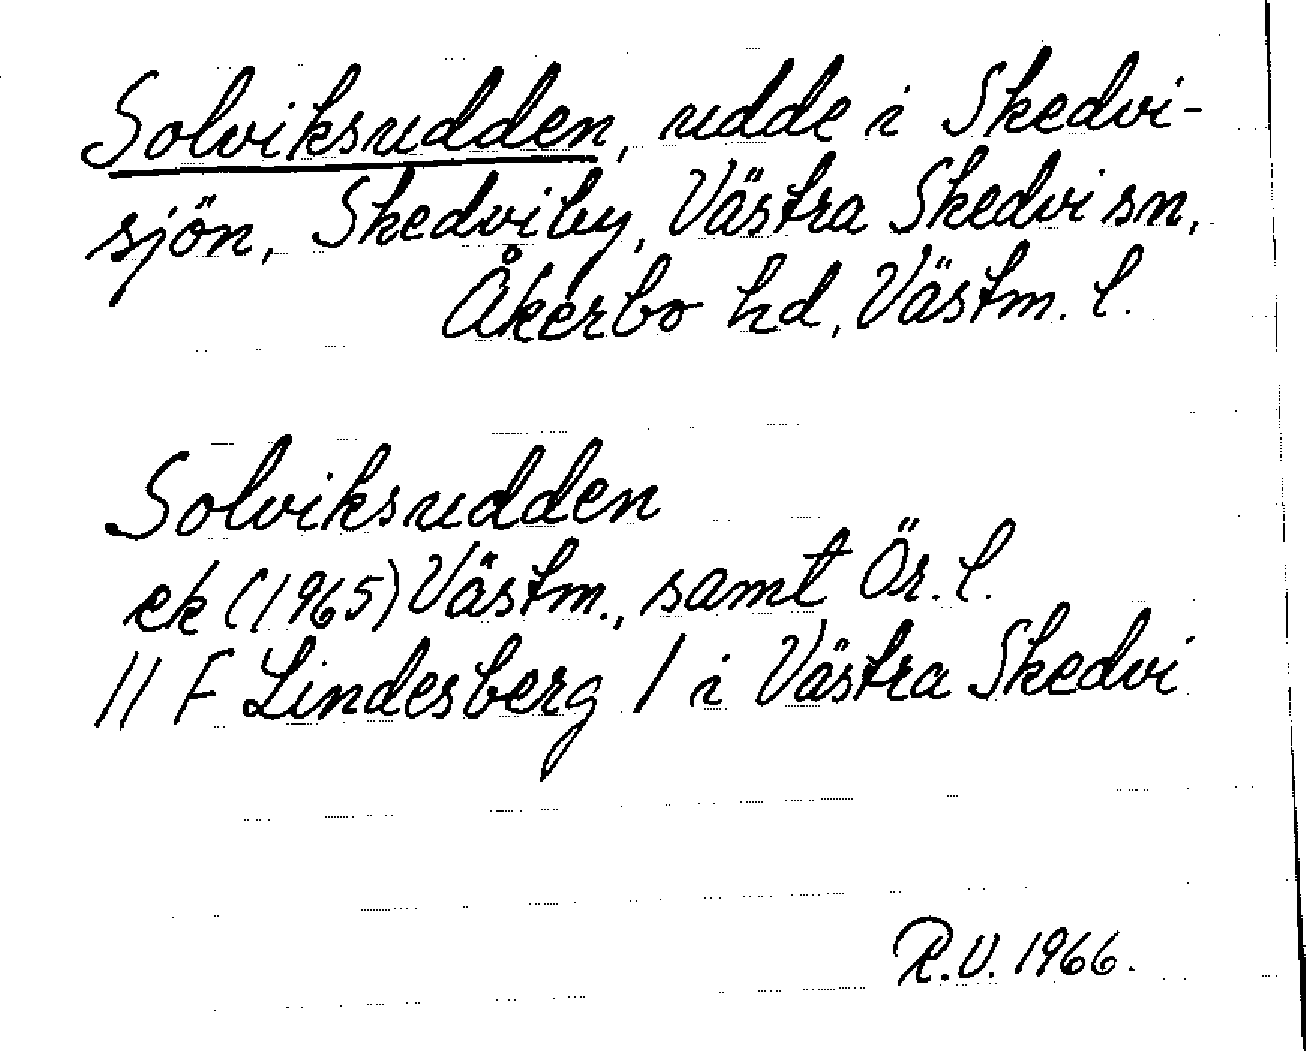 Solviksudden, udde i Skedvi-
sjön, Skedviby, Västra Skedvi sn,
Åkerbo hd, Västm. l.
Solviksudden
ek (1965) Västm., samt Ör. l.
11 F Lindesberg / i Västra Skedvi
R.V. 1966.